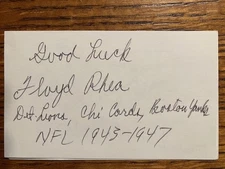 Good Luck
Floyd Rhea
Det Lions, Chi Cards, Boston Yanks
NFL 1943-1947